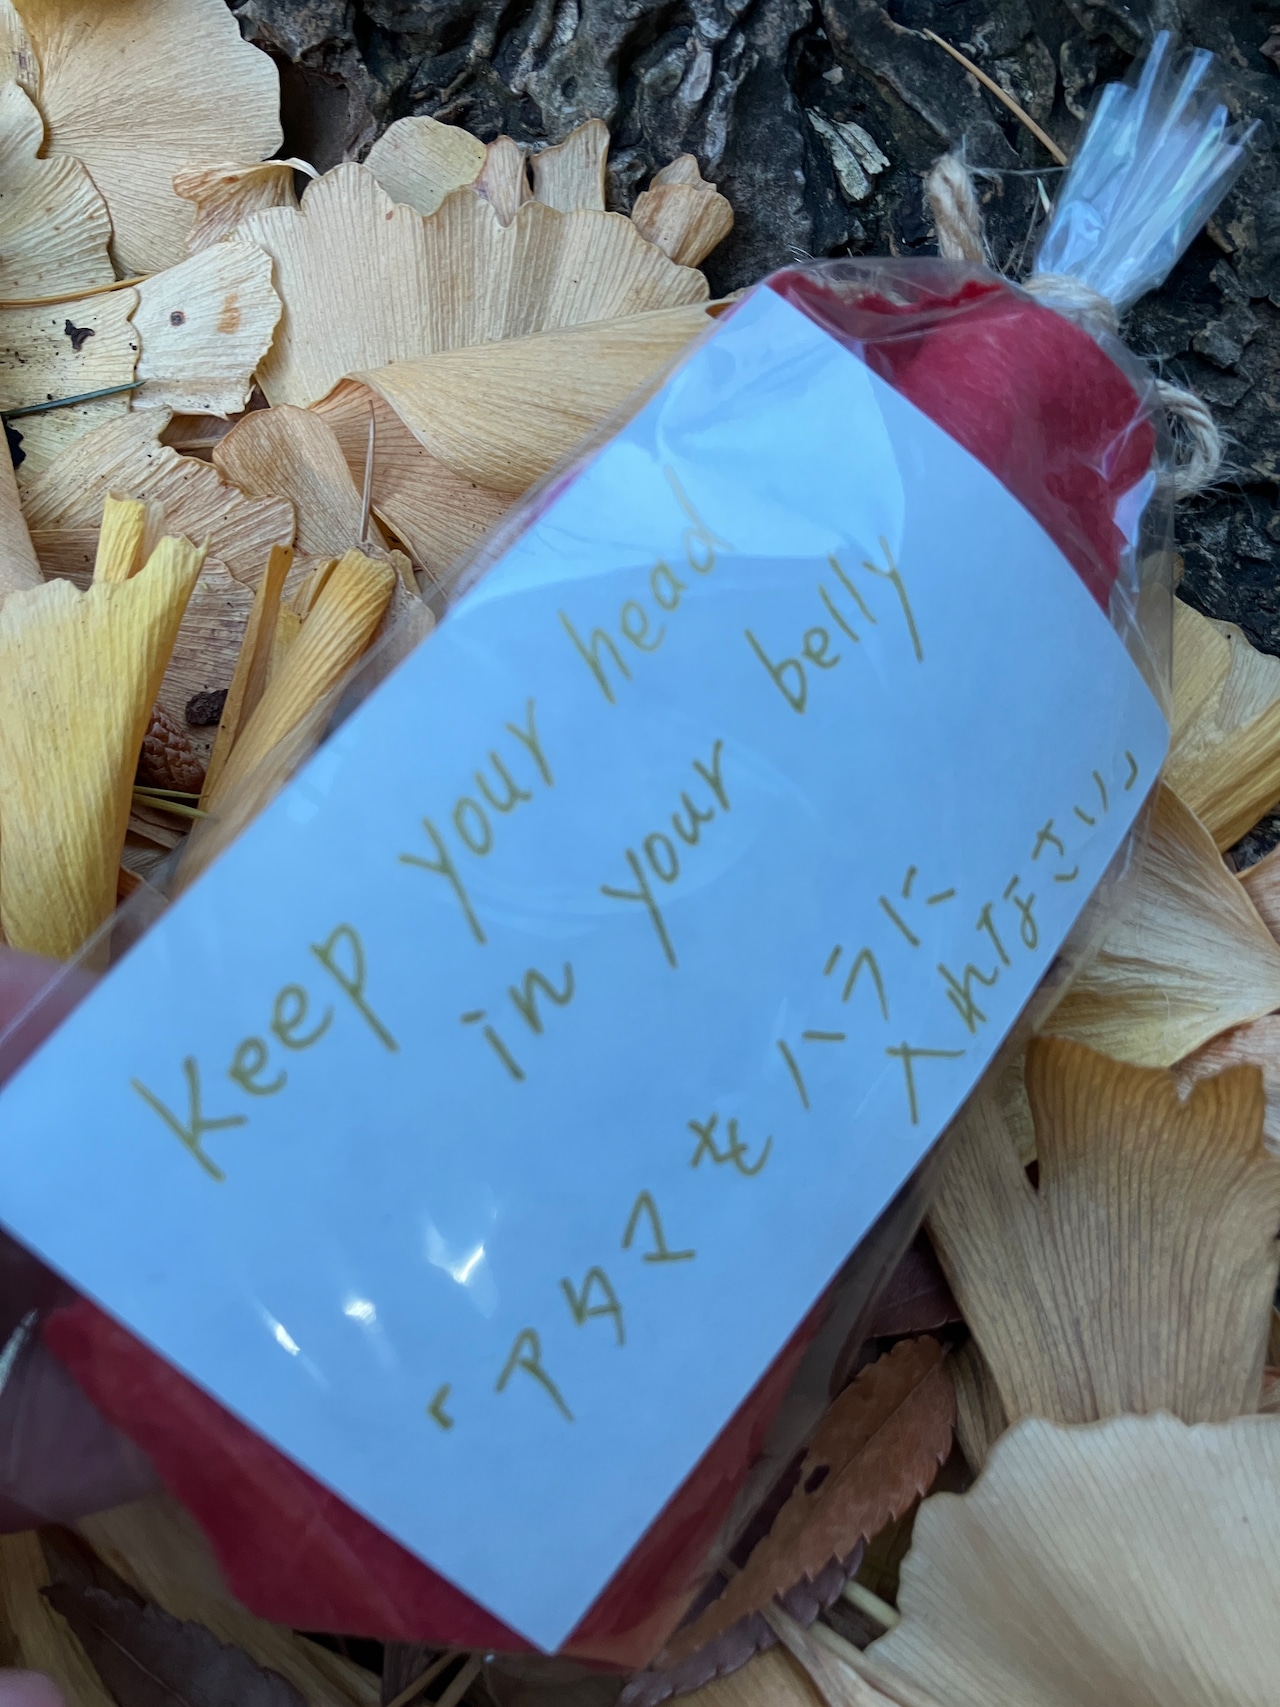 Keep your head
in your belly
「アタマをハラに
入れなさい」